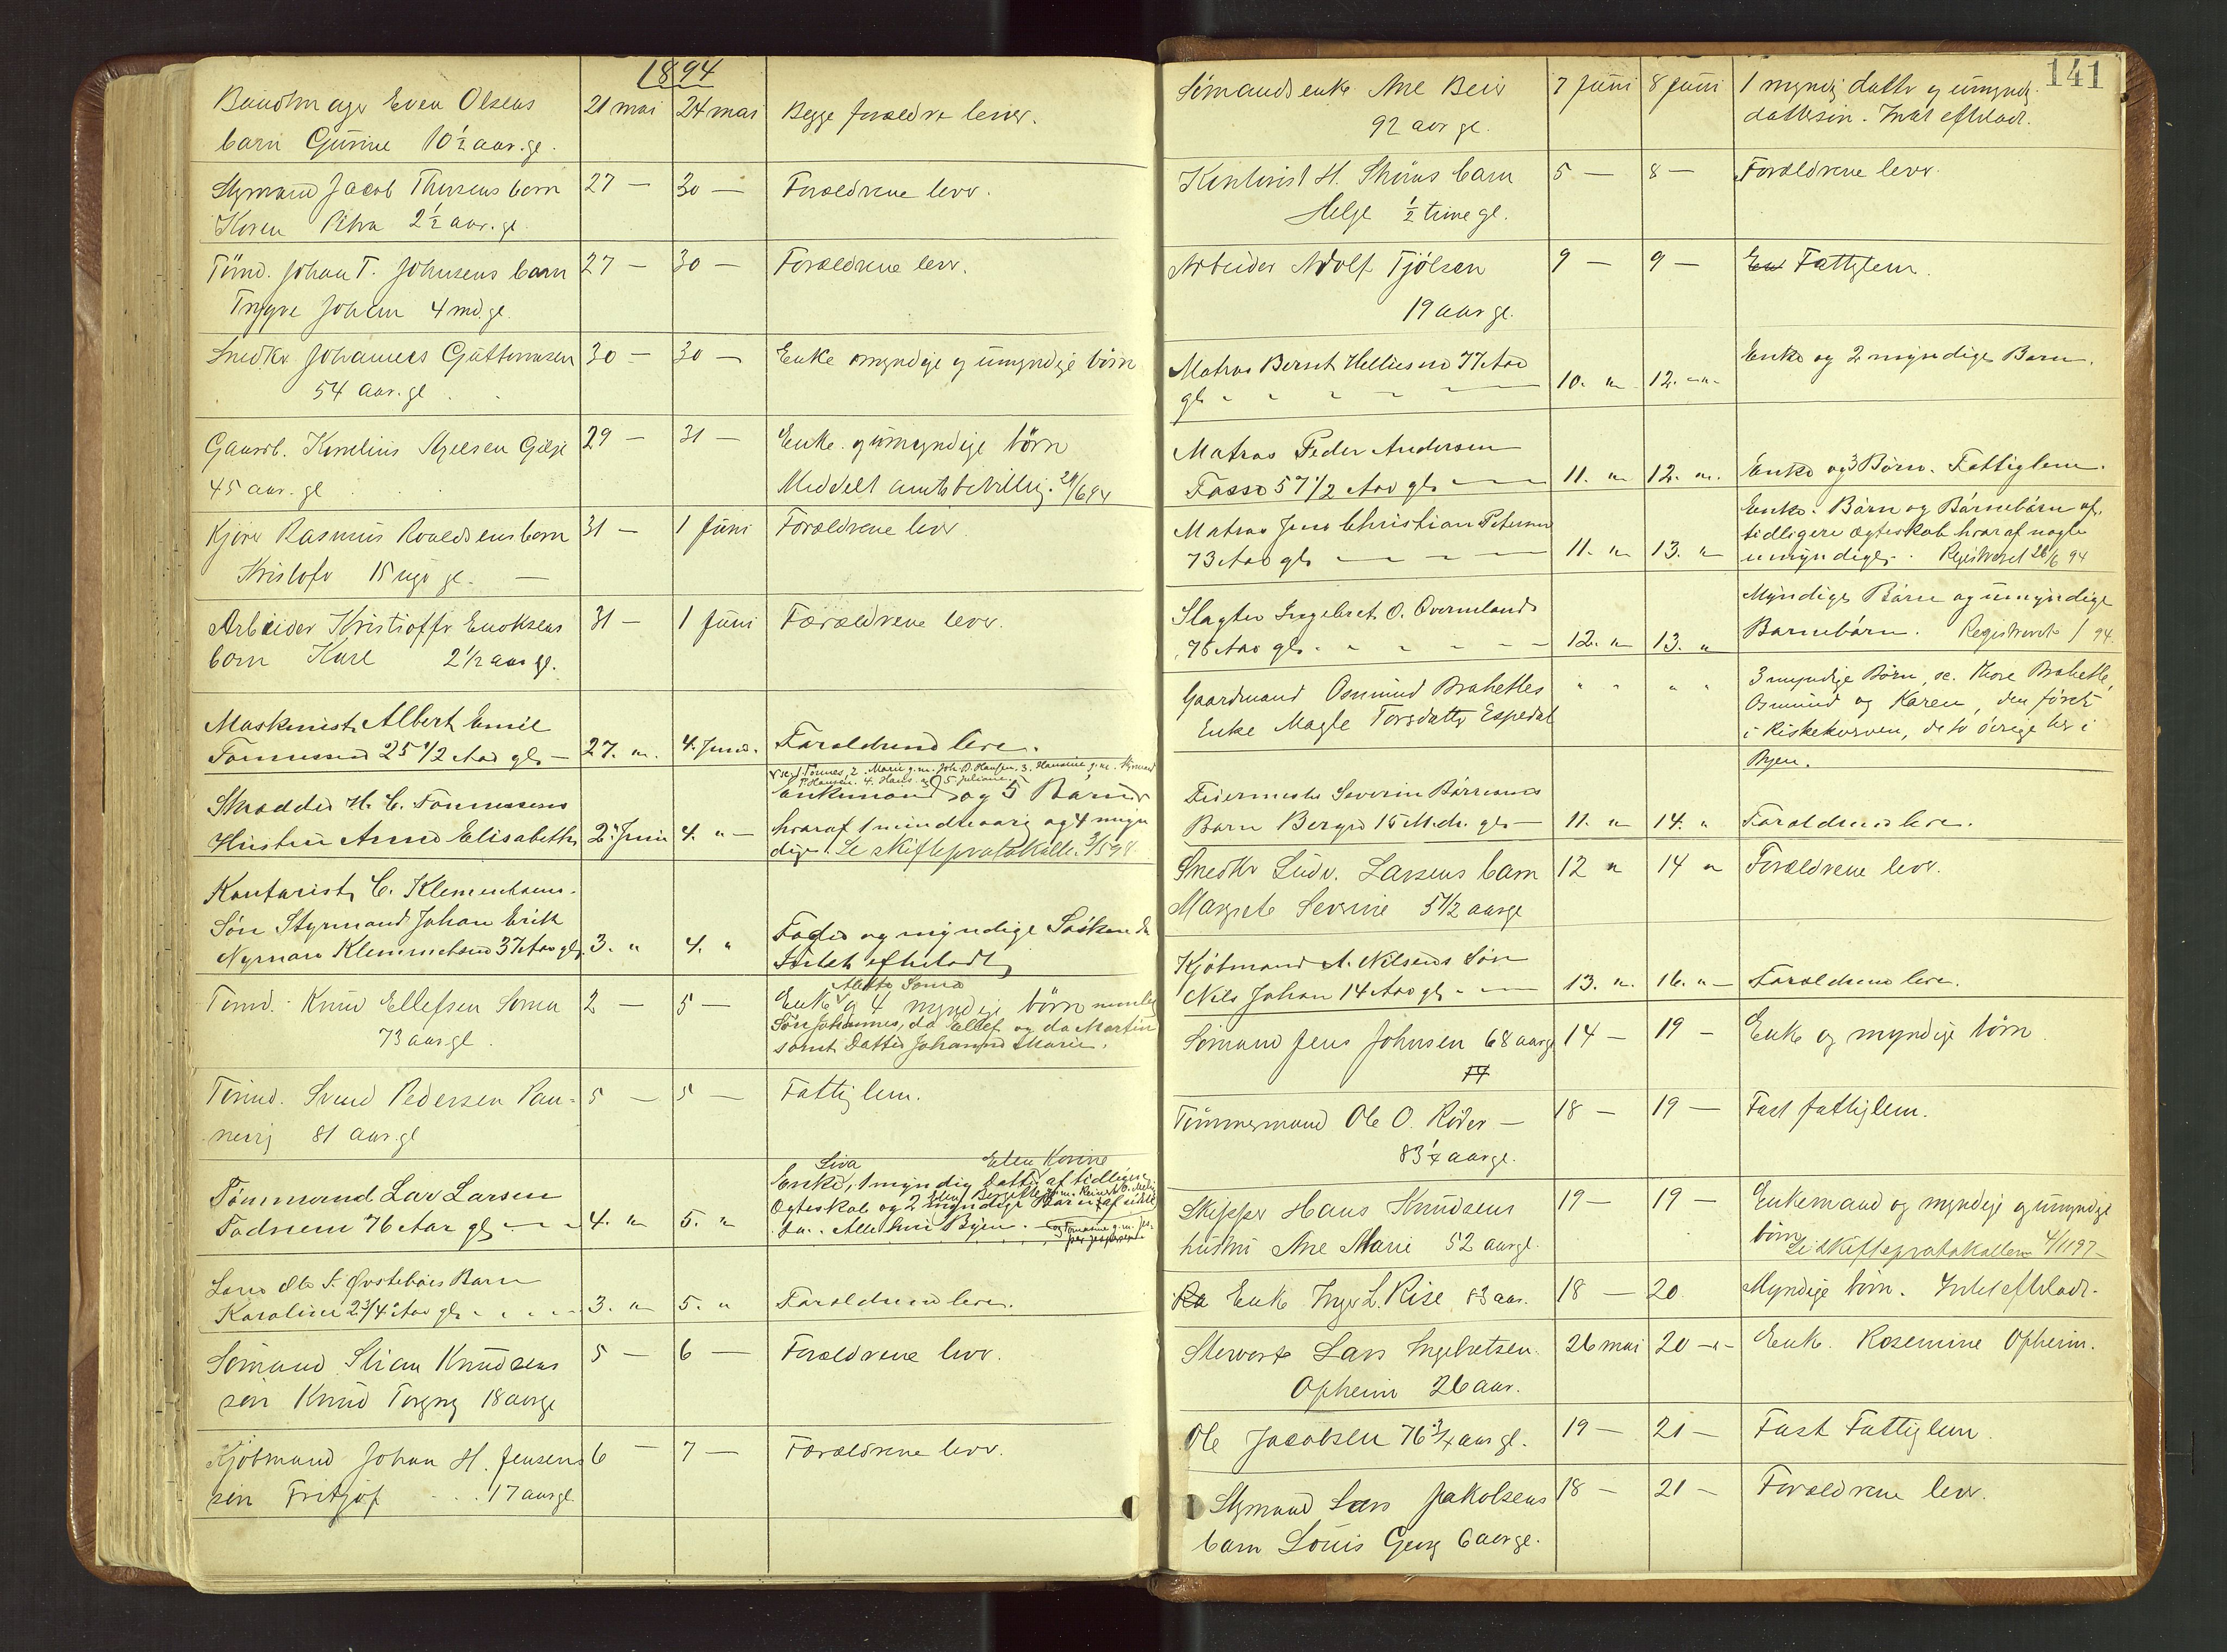 1894
Buntmager Even Olsens 21 mai 24 mai Begge forældre lever.
barn Gurine 10 1/2 aar. gl.
Styrmand Jacob Thorsens barn 27 — 30 — Forældrene lever.
Karen Petra 2 1/2 aar. gl.
Tømd. Johan T. Johnsens barn 27 — 30 — Forældrene lever.
Trygve Johan 4 md. gl.
Snedker Johannes Guttormsen 30 — 30 — Enke myndige og umyndige børn
54 aar. gl.
Gaardb. Kornelius Axelsen Gilje 29 — 31 — Enke og umyndige børn
45 aar. gl. Meddelt amtsbevillig. 29/6 94
Kjører Rasmus Roaldsens barn 31 — 1 Juni Forældrene lever
Kristofer 15 uger gl. —
Arbeider Kristoffer Enoksens 31 — 1 Juni Forældrene lever.
barn Karl 2 1/2 aar gl.
Maskinist Albert Emil
Tønnesen 25 1/2 Aar gl. — 27. " 4. Juni. Forældrene lever.
1. Tønnes, 2. Marie g.m. Joh. D. Hansen, 3. Hansine g.m. Styrmand
P. Hansen. 4. Hans og 5 Juliane.
Skrædder H. C. Tønnessens Enkemand og 5 Børn
Hustru Anna Elisabeth 2. Juni 4. " — hvoraf 1 mindreaarig og 4 myn
dige. Se skifteprotokolle. 3/5 98.
Kontorist C. Klemetsens
Søn Styrmand Johan Erik Fader og myndige Søsken da
Nyman Klemmetsen 37 Aar gl. 3. " 4. " Intet efterladt
Tømd. Knud Ellefsen Soma 2 — 5 — Enke og 4 myndige børn nemlig
73 aar gl. Søn Johannes, do Ellef og do Martin
samt Datter Johanne Marie.
Tømd. Svend Pedersen Pan- 5 — 5 — Fattiglem.
nevig 81 aar gl
Siva Elen Korine
Tømmermand Lars Larsen Enke, 1 myndig Datter af tidligere
Tadnem 76 Aar gl. — — 4. " 5. " Ægteskab og 2 myndige Børn af sidste
do. Alle her i Byen.
Lars Ole T. Østebøes Barn
Karoline 2 3/4 Aar gl. 3. " 5. " Forældrene lever.
Sømand Stian Knudsens 5 — 6 — Forældrene lever.
søn Knud Torgny 18 aar gl
Kjøbmand Johan H. Jensens 6 — 7 — Forældrene lever.
søn Fritjof 17 aar gl.
141
Sømandsenke Ane Beier 7 Juni 8 Juni 1 myndig datter og umyndig
92 aar gl. dattersøn. Intet efterladt.
Kontorist H. Strøms barn 5 — 8 — Forældrene lever.
Helge 1/2 time gl.
Arbeider Adolf Tjølsen 9 — 9 — En Fattiglem.
19 aar gl.
Matros Bernt Helliesen 77 Aar 10. " 12. " Enke og 2 myndige Børn.
gl.
Matros Peder Andersen
Fosse 57 1/2 Aar gl. — 11. " 12. " Enke og 3 Børn. Fattiglem.
Matros Jens Christian Petersen Enke. Børn og Børnebørn af
73 Aar gl. 11. " 13. " tidligere Ægteskab hvoraf nogle
umyndige. Registreret 26/6 94
Slagter Ingebret O. Overnlands Myndige Børn og umyndige
76 Aar gl. 12. " 13. " Børnebørn. Registreret / 94.
Gaardmand Osmund Brahetles " " " " 3 myndige Børn, sc. Thore Brahetle,
Enke Magle Torsdatter Espedal Osmund og Karen, den første
i Riskekorven, de to øvrige her i
Byen.
Fidermester Severin Børresens
Barn Berger 15 Mdr. gl. — 11. " 14. " Forældrene lever.
Snedker Ludv. Larsens barn 12 " 14 " Forældrene lever.
Margrete Severine 5 1/2 aar gl
Kjøbmand A. Nilsens Søn
Nils Johan 14 Aar gl. — 13. " 16. " — Forældrene lever.
Sømand Jens Johnsen 68 aar gl 14 — 19 — Enke og myndige børn
74
Tømmermand Ole O. Røder — 18 — 19 — Fast fattiglem.
83 1/4 aar gl.
Skipper Hans Knudsens 19 — 19 — Enkemand og myndige og umyndige
hustru Ane Marie 52 aar gl. børn Se Skifteprotokollen 4/11 97
Ra Enke Inger L. Rise 83 aar. 18 — 20 Myndige børn. Intet efterladt.
Stewart Lars Ingebretsen 26 mai 20 — Enke Rosemine Opheim.
Opheim 26 aar.
Ole Jacobsen 76 3/4 aar gl. 19 — 21 — Fast Fattiglem.
Styrmand Lars Jakobsens 18 — 21 — Forældrene lever.
barn Louis Georg 6 aar gl.